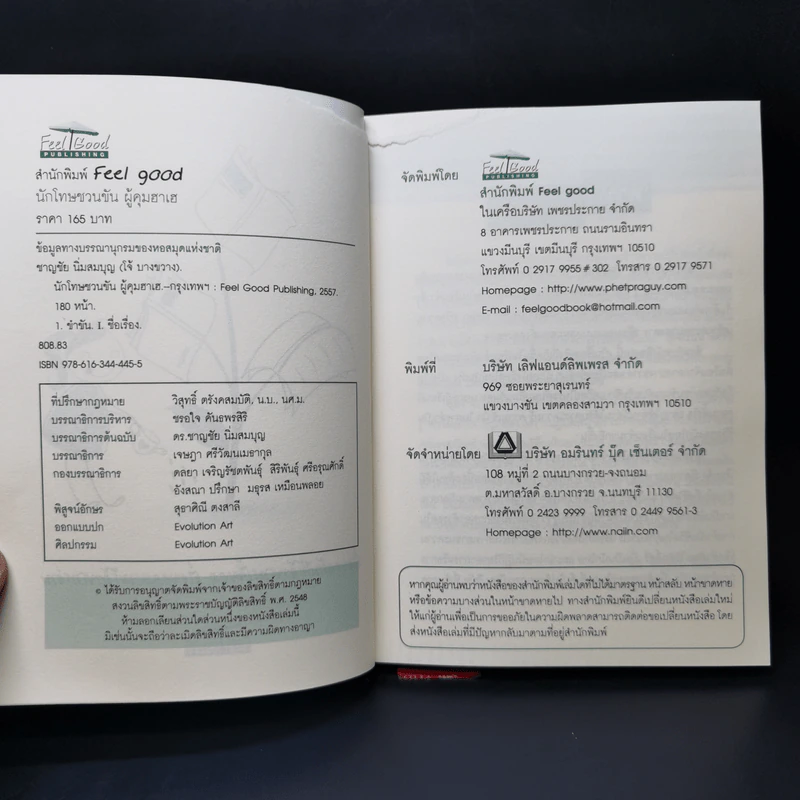 Feel Good
PUBLISHING
สำนักพิมพ์ Feel good
นักโทษชวนขัน ผู้คุมฮาเฮ
ราคา 165 บาท
ข้อมูลทางบรรณานุกรมของหอสมุดแห่งชาติ
ชาญชัย นิ่มสมบุญ (โจ้ บางขวาง).
นักโทษชวนขัน ผู้คุมฮาเฮ.--กรุงเทพฯ : Feel Good Publishing, 2557.
180 หน้า.
1. ขำขัน. I. ชื่อเรื่อง.
808.83
ISBN 978-616-344-445-5
ที่ปรึกษากฎหมาย วิสุทธิ์ ตรังคสมบัติ, น.บ., นศ.ม.
บรรณาธิการบริหาร ชรอใจ คันธพรสิริ
บรรณาธิการต้นฉบับ ดร.ชาญชัย นิ่มสมบุญ
บรรณาธิการ เจษฎา ศรีวัฒนเมธากุล
กองบรรณาธิการ ดลยา เจริญรัชตพันธุ์ สิริพันธุ์ ศรีอรุณศักดิ์
อังสณา ปรึกษา มธุรส เหมือนพลอย
พิสูจน์อักษร สุธาศิณี ดงสาลี
ออกแบบปก Evolution Art
ศิลปกรรม Evolution Art
© ได้รับการอนุญาตจัดพิมพ์จากเจ้าของลิขสิทธิ์ตามกฎหมาย
สงวนลิขสิทธิ์ตามพระราชบัญญัติลิขสิทธิ์ พ.ศ. 2548
ห้ามลอกเลียนส่วนใดส่วนหนึ่งของหนังสือเล่มนี้
มิเช่นนั้นจะถือว่าละเมิดลิขสิทธิ์และมีความผิดทางอาญา
จัดพิมพ์โดย
Feel Good
PUBLISHING
สำนักพิมพ์ Feel good
ในเครือบริษัท เพชรประกาย จำกัด
8 อาคารเพชรประกาย ถนนรามอินทรา
แขวงมีนบุรี เขตมีนบุรี กรุงเทพฯ 10510
โทรศัพท์ 0 2917 9955 # 302 โทรสาร 0 2917 9571
Homepage : http://www.phetpraguy.com
E-mail : feelgoodbook@hotmail.com
พิมพ์ที่ บริษัท เลิฟแอนด์ลิพเพรส จำกัด
969 ซอยพระยาสุเรนทร์
แขวงบางชัน เขตคลองสามวา กรุงเทพฯ 10510
จัดจำหน่ายโดย บริษัท อมรินทร์ บุ๊ค เซ็นเตอร์ จำกัด
108 หมู่ที่ 2 ถนนบางกรวย-จงถนอม
ต.มหาสวัสดิ์ อ.บางกรวย จ.นนทบุรี 11130
โทรศัพท์ 0 2423 9999 โทรสาร 0 2449 9561-3
Homepage : http://www.naiin.com
หากคุณผู้อ่านพบว่าหนังสือของสำนักพิมพ์เล่มใดที่ไม่ได้มาตรฐาน หน้าสลับ หน้าขาดหาย
หรือข้อความบางส่วนในหน้าขาดหายไป ทางสำนักพิมพ์ยินดีเปลี่ยนหนังสือเล่มใหม่
ให้แก่ผู้อ่านเพื่อเป็นการขออภัยในความผิดพลาดสามารถติดต่อขอเปลี่ยนหนังสือ โดย
ส่งหนังสือเล่มที่มีปัญหากลับมาตามที่อยู่สำนักพิมพ์